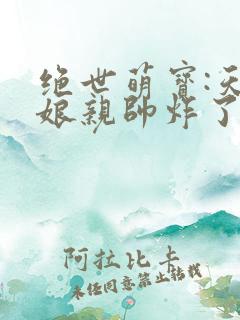 绝世萌寶:天
娘親帥炸了
阿拉比卡
未经同意禁止转载